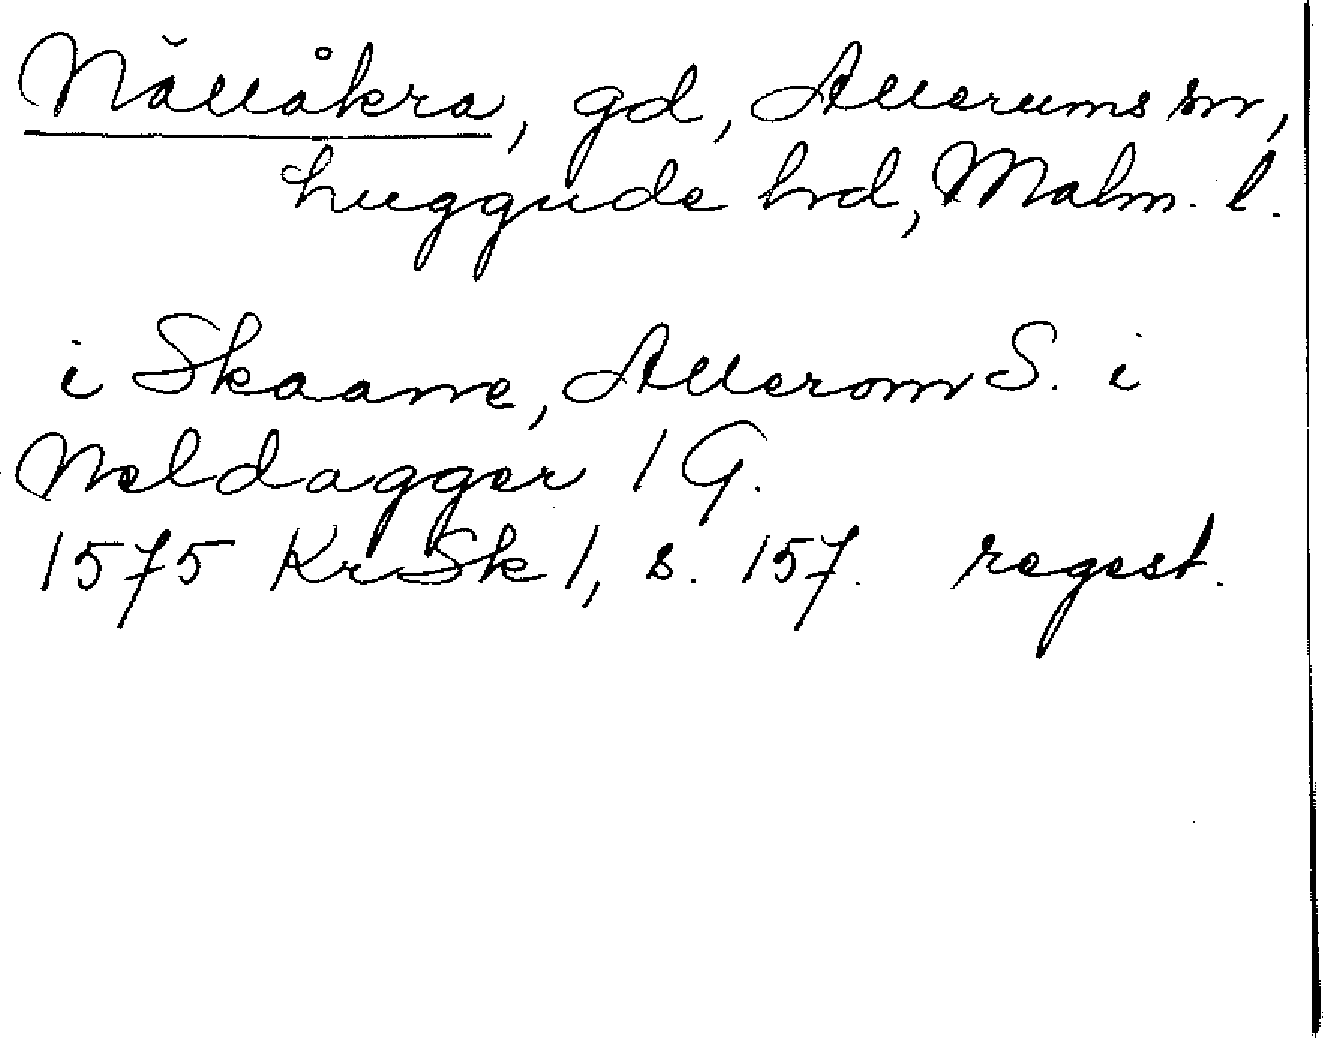 Nällåkra, gd, Allerums sn,
Luggude hrd, Malm. l.
i Skaane, Allerom S. i
Neldagger 1 G.
1575 KrSk 1, s. 157. regest.